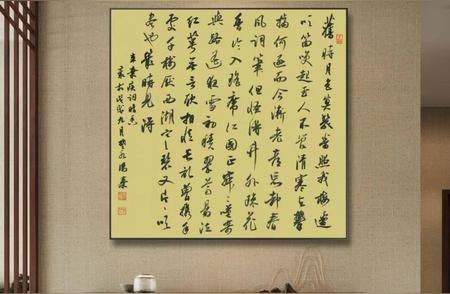 舊時月色算幾番照我梅邊
吹笛喚起玉人不管清寒與攀
摘何遜而今漸老都忘卻春
風詞筆但怪得竹外疏花
香冷入瑤席江國正寂寂嘆寄
與路遙夜雪初積翠尊易泣
紅萼無言耿相憶長記曾攜手
處千樹壓西湖寒碧又片片吹
盡也幾時見得
姜夔詞暗香
戊戌九月